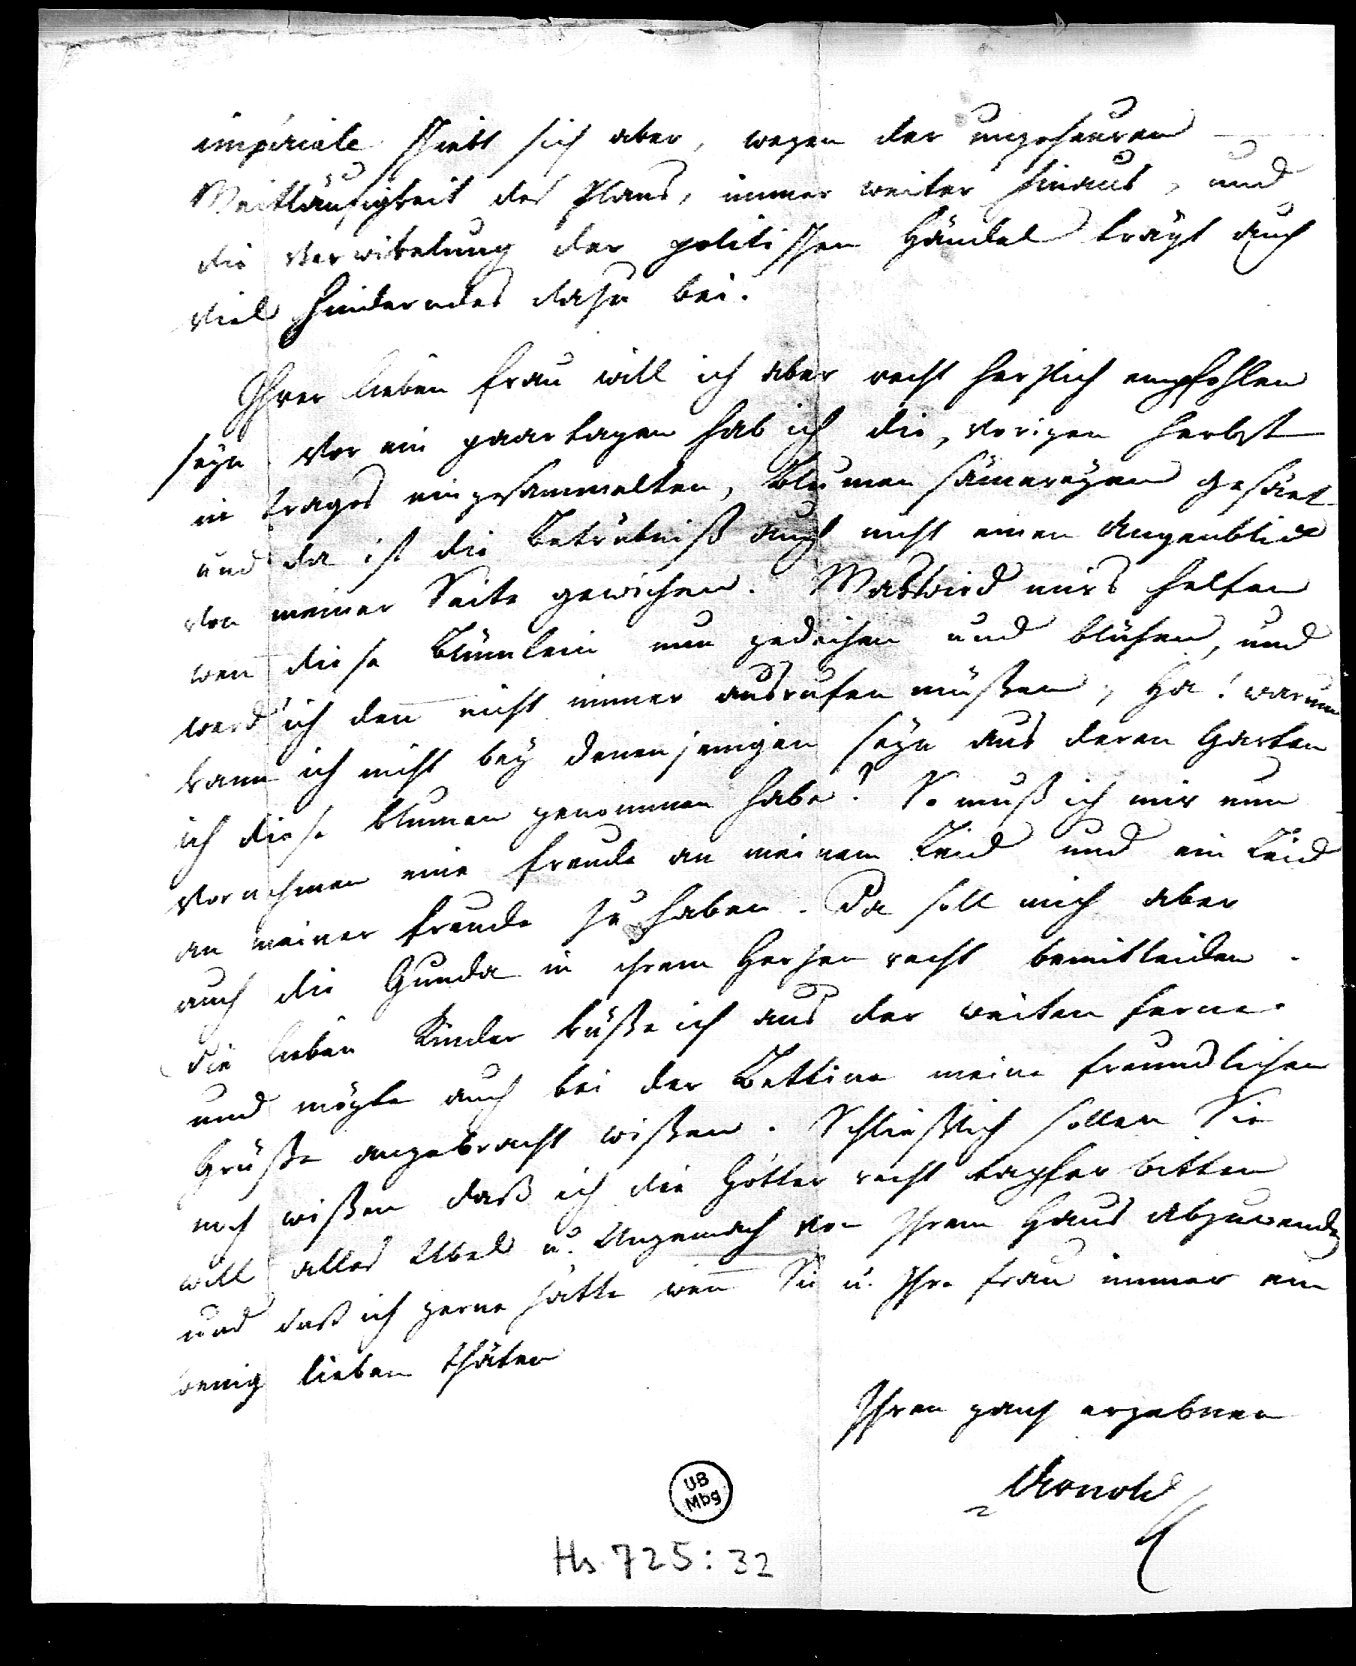 impériale schiebt sich aber, wegen der ungeheuren
Weitläufigkeit des Plans, immer weiter hinaus, und
die Verwikelung der politischen Händel trägt auch
viel hinderndes dazu bei.
Ihrer lieben Frau will ich aber recht herzlich empfohlen
seyn. Vor ein paar Tagen hab ich die, vorigen Herbst
in Trages eingesammelten, Blumen sämereyen gesäet
und da ist die Betrübniß auch nicht einen Augenblick
von meiner Seite gewichen. Was wird mirs helfen
wen̄ diese Blümlein nun gedeihen und blühen, und
werd ich den̄ nicht immer ausrufen müßen, Ha! warum
kann ich nicht bey denenjenigen seyn aus deren Garten
ich diese Blumen genommen habe? So muß ich mir nun
vornehmen eine Freude an meinem Leid und ein Leid
an meiner Freude zu haben. Da soll mich aber
auch die Gunda in ihrem Herzen recht bemitleiden.
Die lieben Kinder küße ich aus der weiten Ferne
und mögte auch bei der Bettine meine freundlichen
Grüße angebracht wißen. Schließlich sollen Sie
noch wißen daß ich die Götter recht tapfer bitten
will alles Übel u. Ungemach von Ihrem Haus abzuwenden
und daß ich gerne hätte wen̄ Sie u. Ihre Frau immer ein
wenig lieben thäten
Ihren ganz ergebnen
Arnold
UB
Mbg
Hs. 725:32